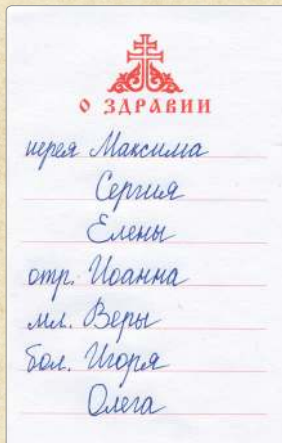 О ЗДРАВИИ
иерея Максима
Сергия
Елены
отр. Иоанна
мл. Веры
бол. Игоря
Олега